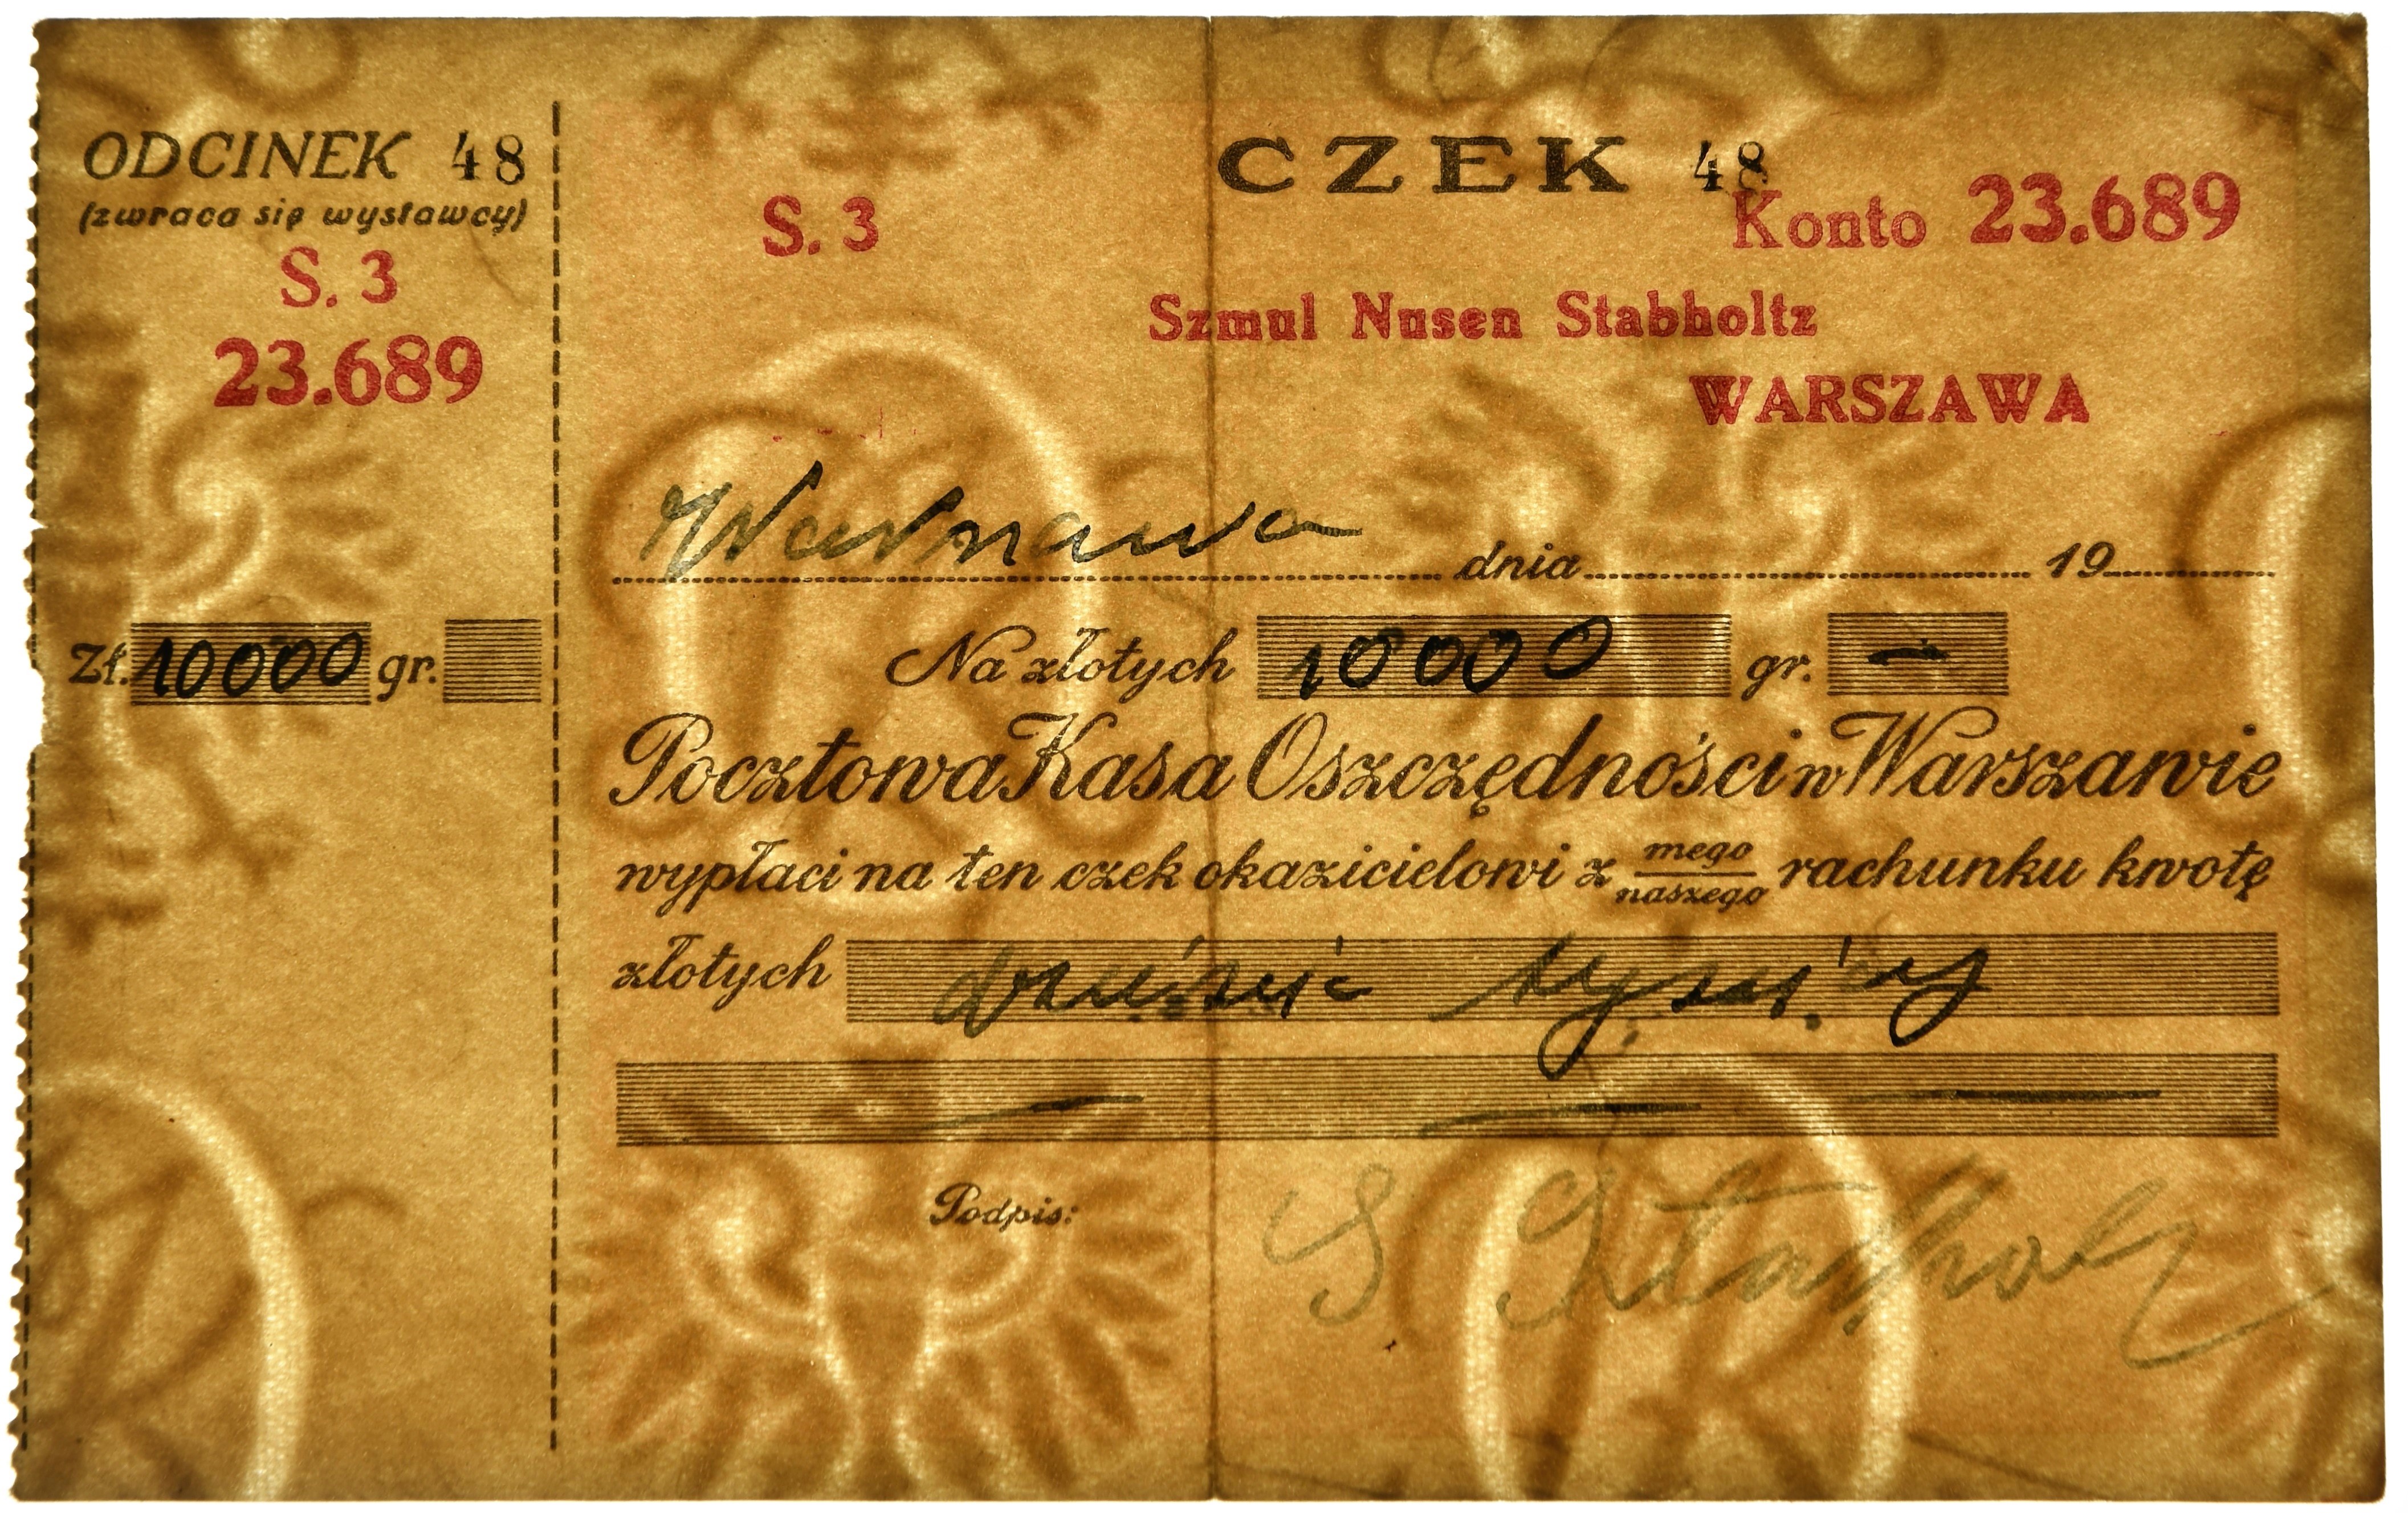 ODCINEK 48
(zwraca się wystawcy)
S. 3
23.689
Zł. 10000 gr.
CZEK 48
S. 3
Konto 23.689
Szmul Nusen Stabholtz
WARSZAWA
Warszawa dnia 19
Na złotych 10000 gr. —
Pocztowa Kasa Oszczędności w Warszawie
wypłaci na ten czek okazicielowi z mego/naszego rachunku kwotę
złotych dziesięć tysięcy
Podpis: S. Stabholz